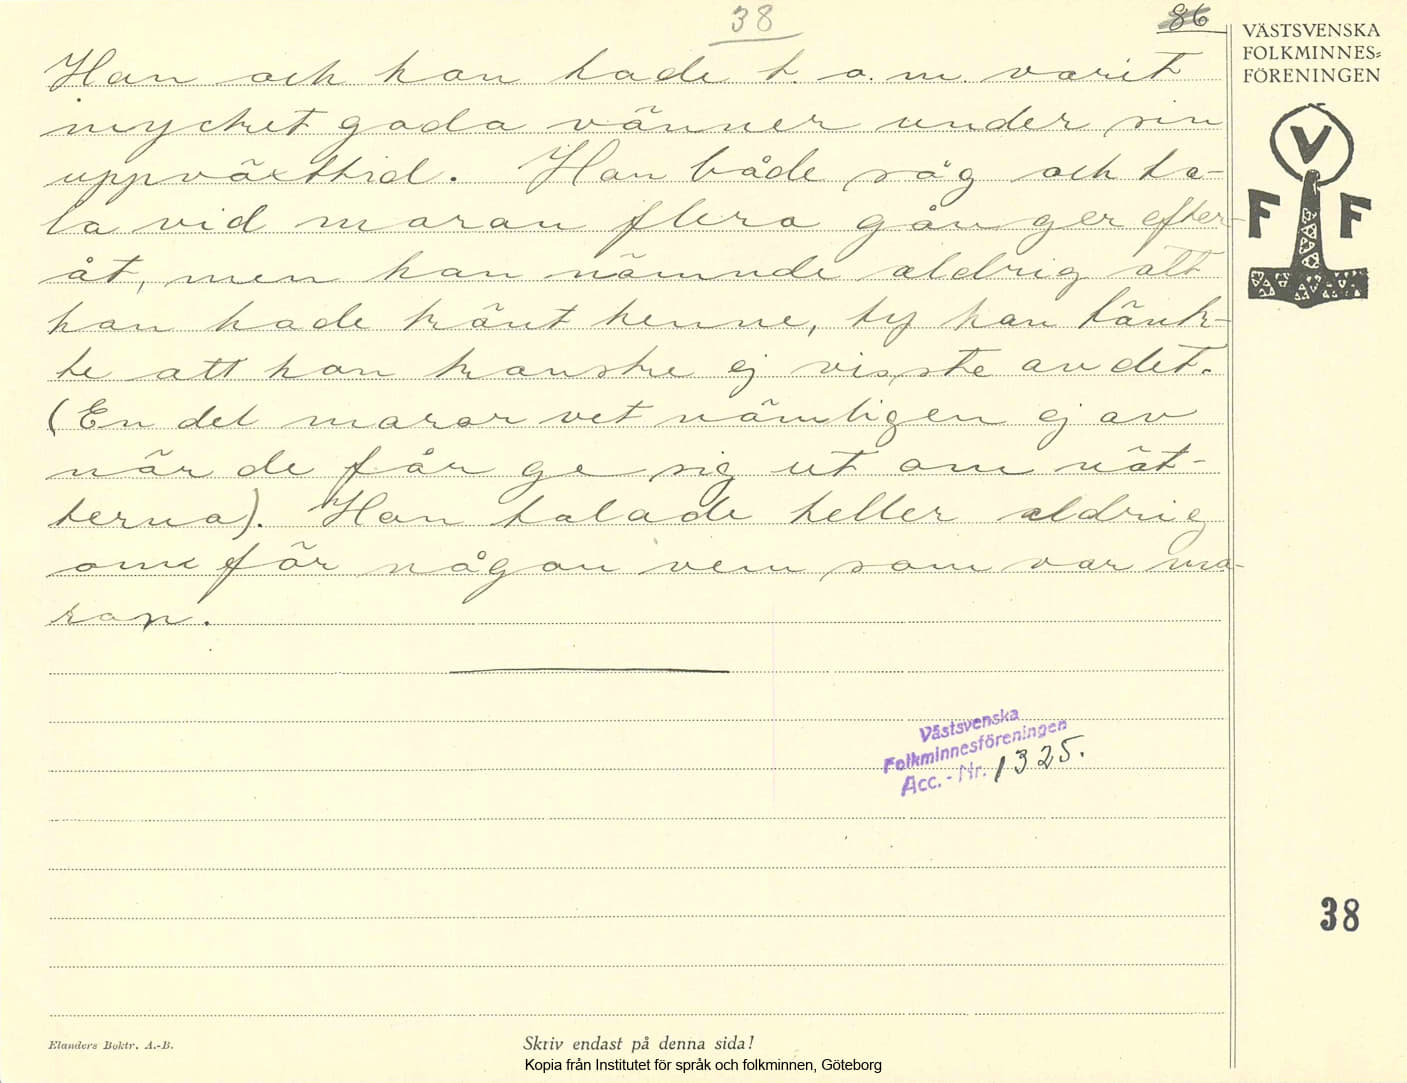 38
86
VÄSTSVENSKA
FOLKMINNES=
FÖRENINGEN
V
F F
Han och hon hade t. o. m. varit
mycket goda vänner under sin
uppväxttid. Han både såg och ta-
la vid maran flera gånger efter-
åt, men han nämnde aldrig att
han hade känt henne, ty han tänk-
te att hon kanske ej visste av det.
(En del maror vet nämligen ej av
när de får ge sig ut om nät-
terna). Han talade heller aldrig
om för någon vem som var ma-
ran.
Västsvenska
Folkminnesföreningen
Acc. - Nr. 1325.
38
Elanders Boktr. A.-B.
Skriv endast på denna sida!
Kopia från Institutet för språk och folkminnen, Göteborg